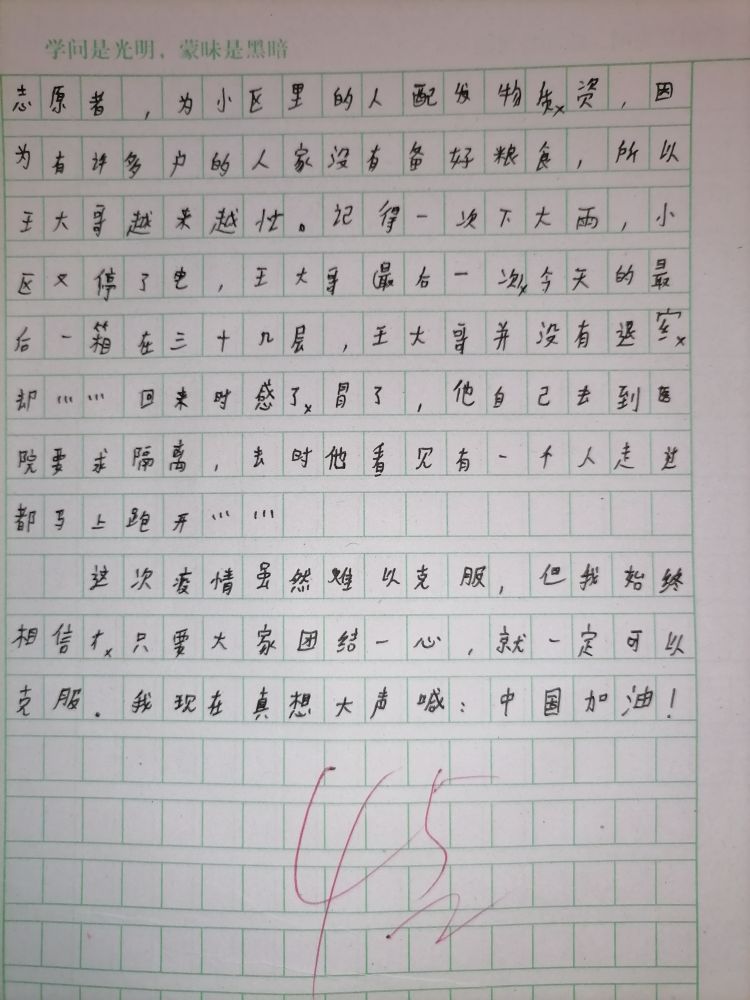 学问是光明，蒙昧是黑暗
志原者，为小区里的人配发物质x资，因
为有许多户的人家没有备好粮食，所以
王大哥越来越忙。记得一次下大雨，小
区又停了电，王大哥最后一次x今天的最
后一箱在三十九层，王大哥并没有退x
却…… 回来时感了x冒了，他自己去到医
院要求隔离，去时他看见有一个人走过
都马上跑开……
这次疫情虽然难以克服，但我始终
相信x只要大家团结一心，就一定可以
克服。我现在真想大声喊：中国加油！
45